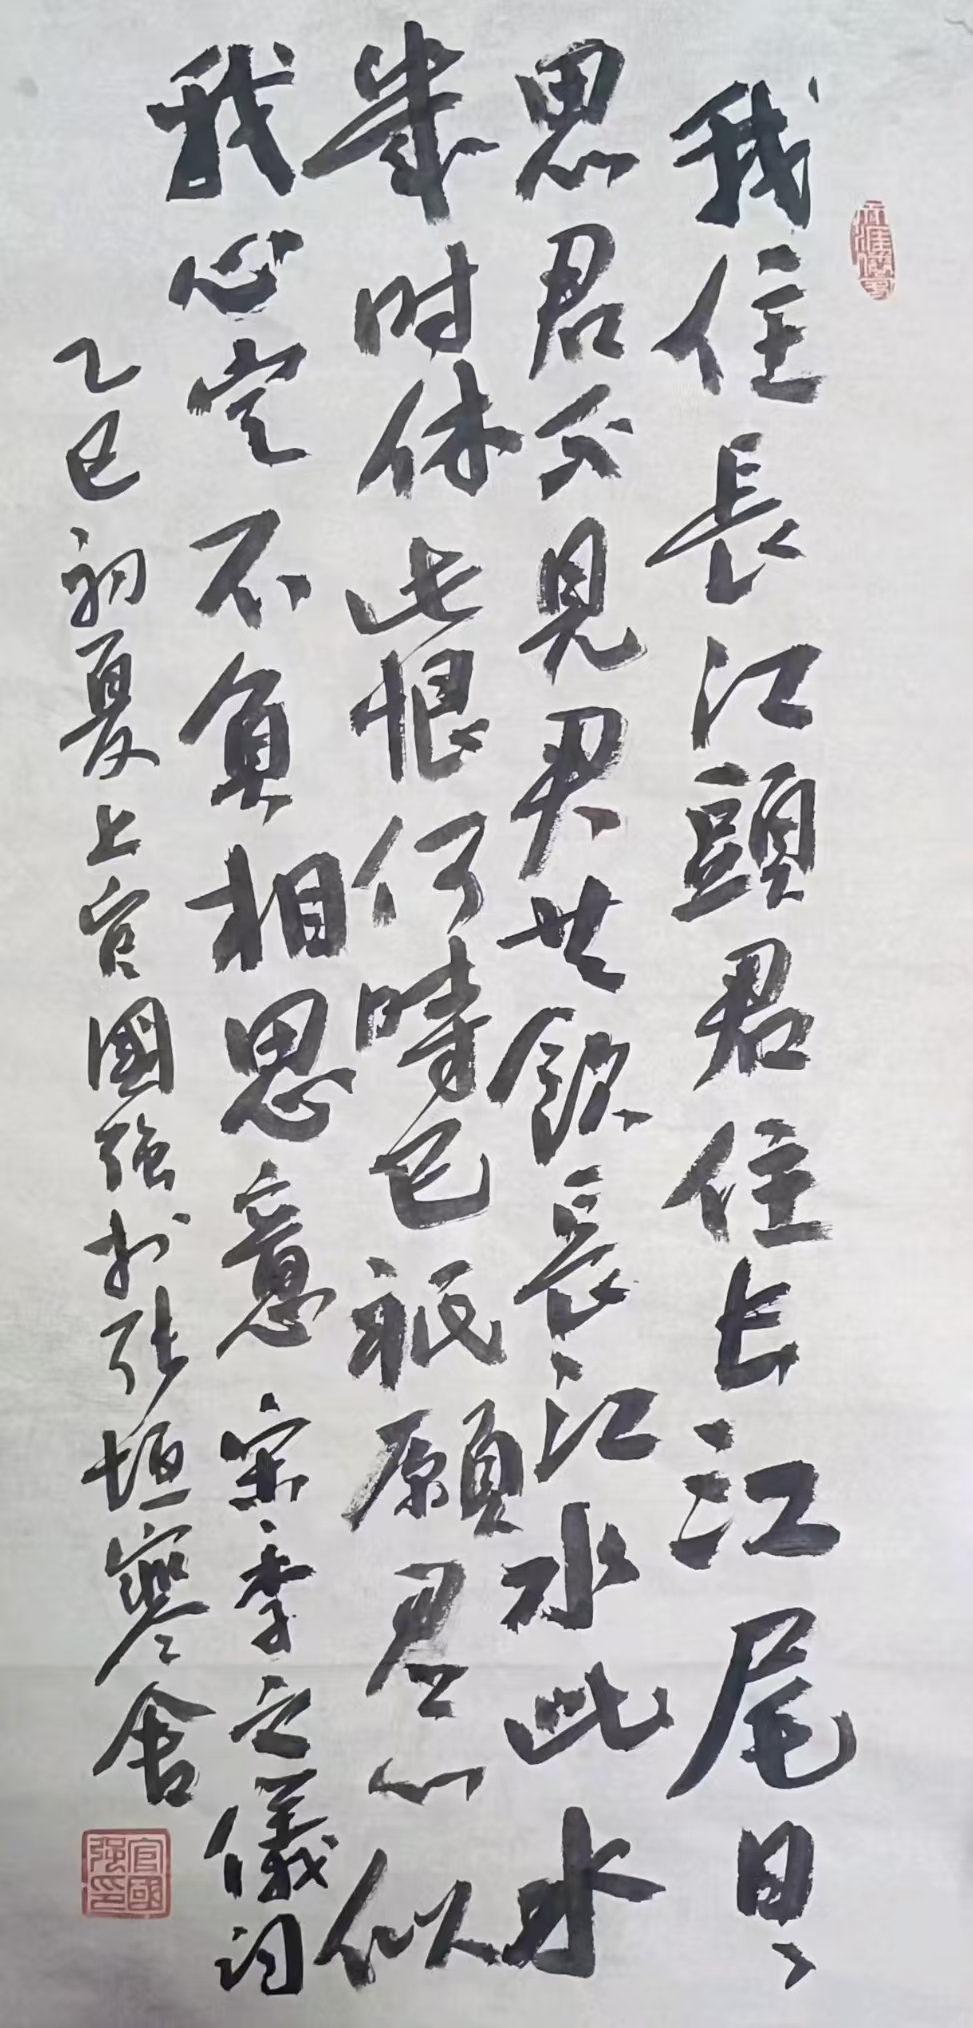 我住長江頭君住长江尾日々
思君不見君共飲長江水此水
幾时休此恨何時已祇願君心似
我心定不負相思意 宋李之儀词
乙巳初夏上官國強书张垣寒舍
官國
强印